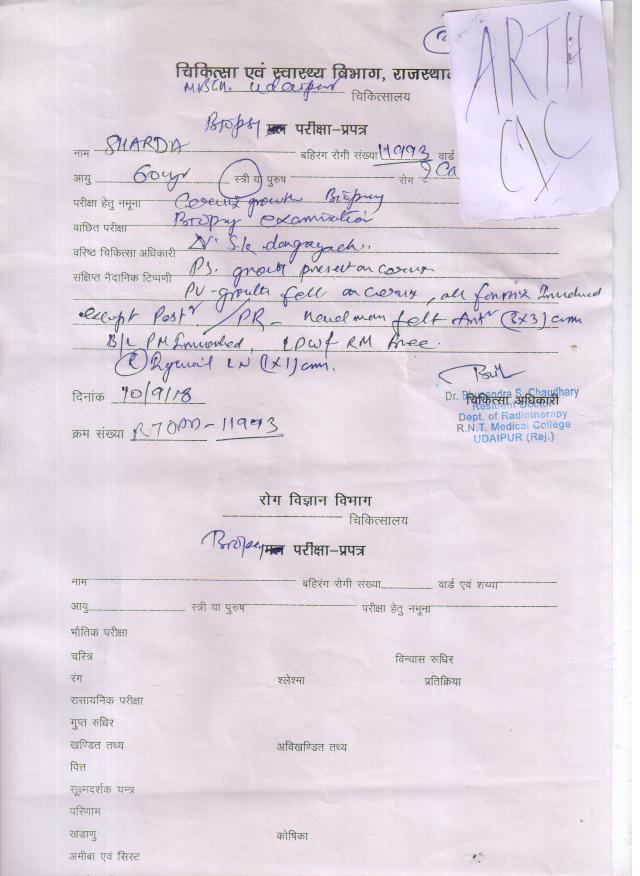 ARTH
चिकित्सा एवं स्वास्थ्य विभाग, राजस्थान
Udaipur चिकित्सालय
Biopsy परीक्षा-प्रपत्र
नाम SHARDA बहिरंग रोगी संख्या 11993 वार्ड
आयु 60yr स्त्री या पुरुष रोग ? Ca
परीक्षा हेतु नमूना Cervix growth Biopsy
वांछित परीक्षा Biopsy examination
वरिष्ठ चिकित्सा अधिकारी Dr. S.K. dangayach.
संक्षिप्त नैदानिक टिप्पणी PS. growth present on cervix
PV - growth felt on cervix, all fornix Involved
except Post / PR - felt Ant (2x3) cm
B/L PM Involved, RM free.
(R) LN (1x1) cm.
दिनांक 10/9/18
चिकित्सा अधिकारी
Dr. Bhupendra S. Chaudhary
Resident Doctor
Dept. of Radiotherapy
R.N.T. Medical College
UDAIPUR (Raj.)
क्रम संख्या RTOPD - 11993
रोग विज्ञान विभाग
चिकित्सालय
Biopsy परीक्षा-प्रपत्र
नाम बहिरंग रोगी संख्या वार्ड एवं शय्या
आयु स्त्री या पुरुष परीक्षा हेतु नमूना
भौतिक परीक्षा
चरित्र विन्यास रूधिर
रंग श्लेश्मा प्रतिक्रिया
रासायनिक परीक्षा
गुप्त रुधिर
खण्डित तथ्य अविखण्डित तथ्य
पित्त
सूक्ष्मदर्शक यन्त्र
परिणाम
खडाणु कोषिका
अमीबा एवं सिस्ट